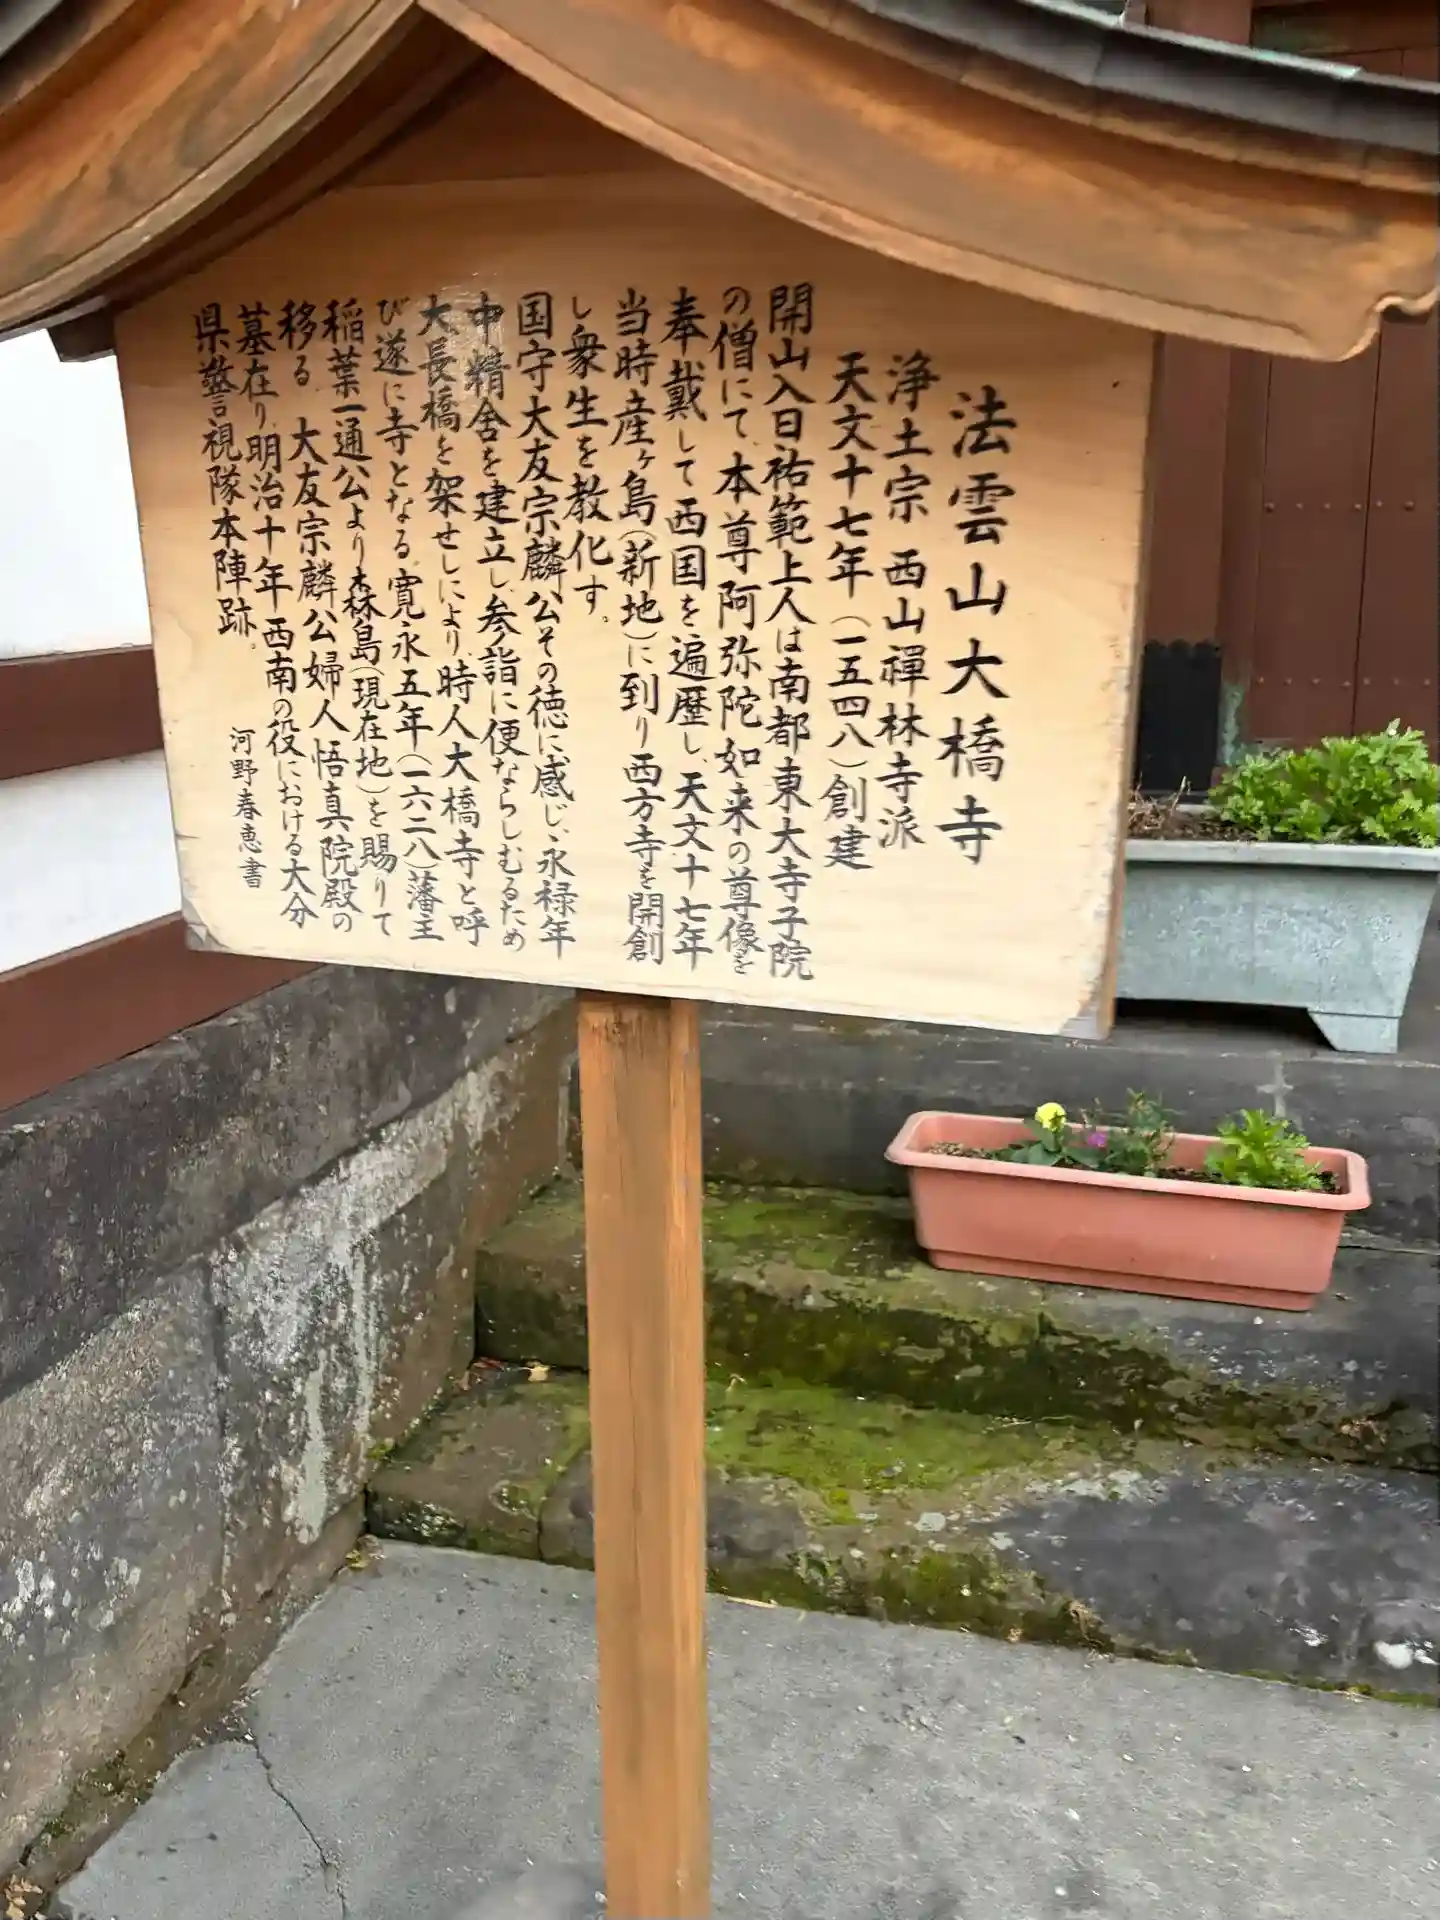 法雲山大橋寺
浄土宗 西山禅林寺派
天文十七年(一五四八)創建
開山入日祐範上人は南都東大寺子院
の僧にて、本尊阿弥陀如来の尊像を
奉戴して西国を遍歴し、天文十七年
当時産ヶ島(新地)に到り西方寺を開創
し衆生を教化す。
国守大友宗麟公その徳に感じ、永禄年
中精舎を建立し参詣に便ならしむるため
大長橋を架せしにより、時人大橋寺と呼
び遂に寺となる。寛永五年(一六二八)藩主
稲葉一通公より森島(現在地)を賜りて
移る 大友宗麟公婦人悟真院殿の
墓在り、明治十年西南の役における大分
県警視隊本陣跡。
河野春恵書